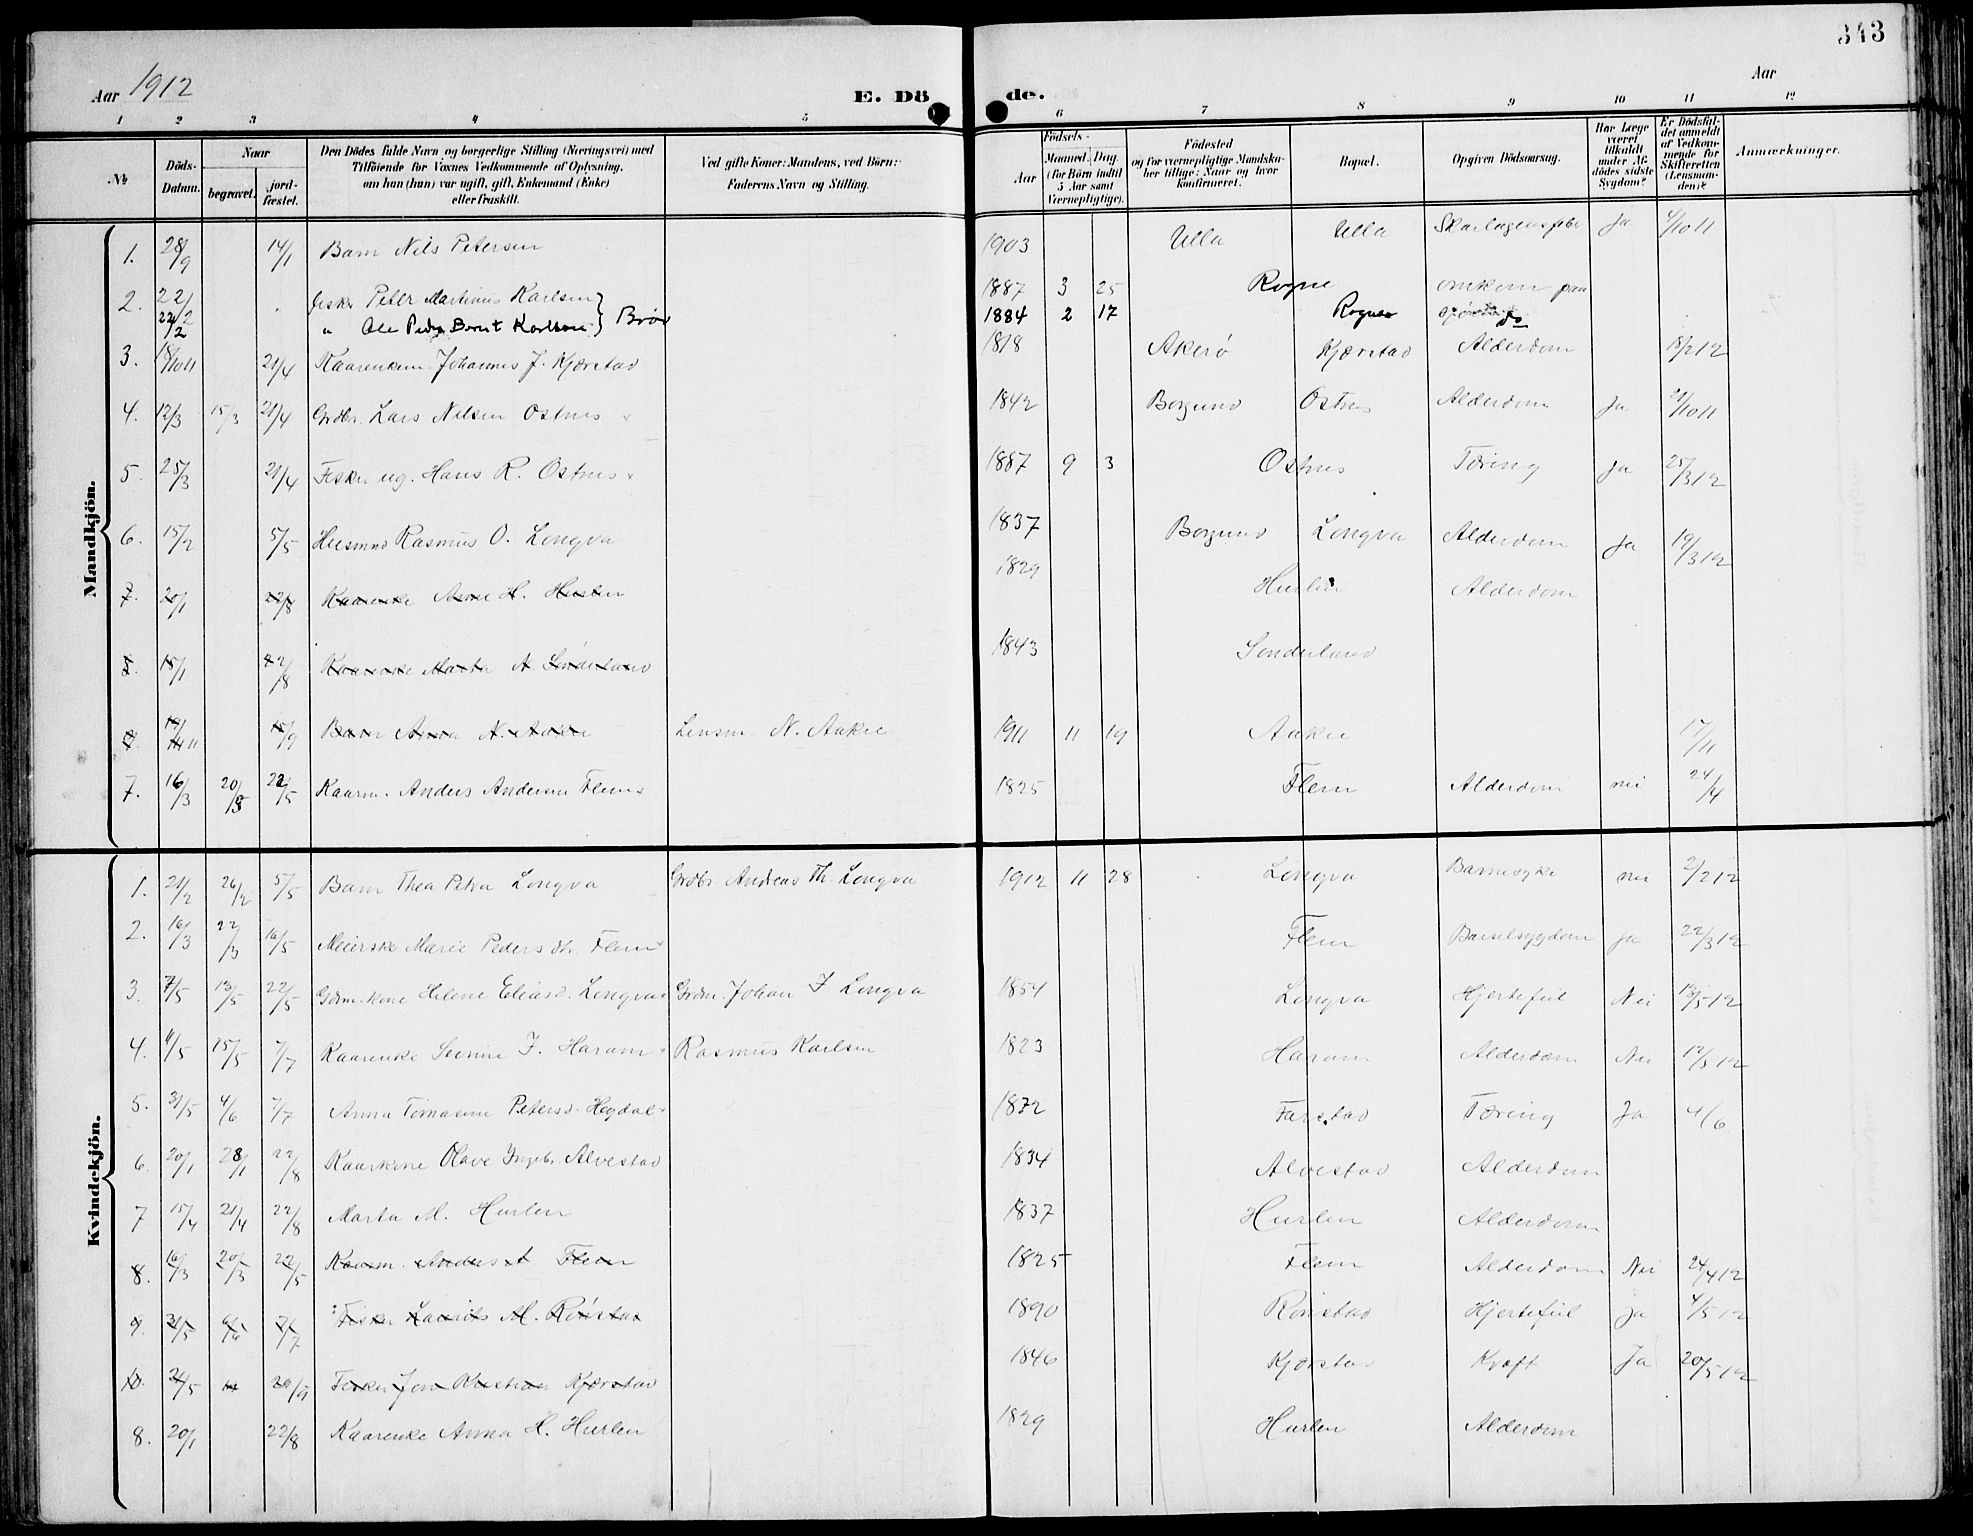 343
Aar 1912 E. Dö de. Aar
1 2 3 4 5 6 7 8 9 10 11 12
№ Döds-Datum. Naar begravet. jord-fæstet. Den Dödes fulde Navn og borgerlige Stilling (Næringsvei) med Tilföiende for Voxnes Vedkommende af Oplysning, om han (hun) var ugift, gift, Enkemand (Enke) eller fraskilt. Ved gifte Koner: Mandens, ved Börn: Faderens Navn og Stilling. Födsels- Aar Maaned. Dag. (for Börn indtil 5 Aar samt Værnepligtige). Födested og for værnepligtige Mandskaber tillige: Naar og hvor konfirmeret. Bopæl. Opgiven Dödsaarsag. Har Læge været tilkaldt under Afdödes sidste Sygdom? Er Dödsfaldet anmeldt af Vedkommende for Skifteretten (Lensmanden)? Anmærkninger.
Mandkjön.
1. 28/9 14/1 Barn Nils Petersen 1903 Ulla Ulla Skarlagensfeber Ja 4/10 11
2. 22/2 Fisker Peter Martinus Karlsen 1887 3 25 Rogne omkom paa
22/2 " Ole Peder Bernt Karlsen } Brør 1884 2 17 Rogne sjøen do
3. 18/10 11 21/4 Kaarenkem. Johannes J. Kjærstad 1818 Akerø Kjærstad Alderdom 18/2 12
4. 12/3 15/3 21/4 Grdbr. Lars Nilsen Ostnes 1842 Borgund Ostnes Alderdom Ja 21/10 11
5. 25/3 21/4 Fisker ug. Hans R. Ostnes 1887 9 3 Ostnes Tæring Ja 25/3 12
6. 15/2 5/5 Husmnd Rasmus O. Longva 1837 Borgund Longva Alderdom Ja 19/3 12
7. 20/1 22/8 Kaarenke Anne H. Hurlen 1829 Hurlen Alderdom
8. 15/1 22/8 Kaarenke Marta A Sønderland 1843 Sønderland
15/9 Barn Anna N. Aakre Lensm. N. Aakre 1911 11 19 Aakre 17/11
7. 16/3 20/3 22/5 Kaarm. Anders Andersen Flem 1825 Flem Alderdom nei 24/4
Kvindekjön.
1. 21/2 26/2 5/5 Barn Thea Petra Longva Grdbr. Andreas Th. Longva 1912 11 28 Longva Barnesyke nei 2/2 12
2. 16/3 22/3 16/5 Meierske Marie Pedersdtr. Flem Flem Barselsygdom Ja 22/3 12
3. 7/5 13/5 22/5 Gdm.kone Helene Eliasd. Longva Grdm. Johan J Longva 1854 Longva Hjertefeil Nei 13/5 12
4. 11/5 15/5 7/7 Kaarenke J. Haram Rasmus Karlsen 1823 Haram Alderdom Nei 12/5 12
5. 31/5 4/6 7/7 Anna Tomasine Petersd. Hegdal 1872 Farstad Tæring Ja 4/6
6. 20/1 28/1 22/8 Kaarkone Olave Ingebr. Alvestad 1834 Alvestad Alderdom
7 15/4 21/4 22/8 Marta M. Hurlen 1837 Hurlen Alderdom
8. 16/3 20/3 22/5 Kaarm. Anders A. Flem 1825 Flem Alderdom Nei 24/4 12
9. 31/5 6/6 7/7 Fisker Laurits M. Rønstad 1890 Rønstad Hjertefeil Ja 4/5 12
10. 24/5 Fisker Jon Kristian Kjærstad 1846 Kjærstad Kræft Ja 20/5 12
8. 20/1 22/8 Kaarenke Anna H. Hurlen 1829 Hurlen Alderdom